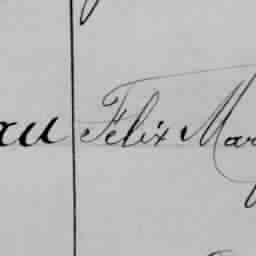 au Félix Mar